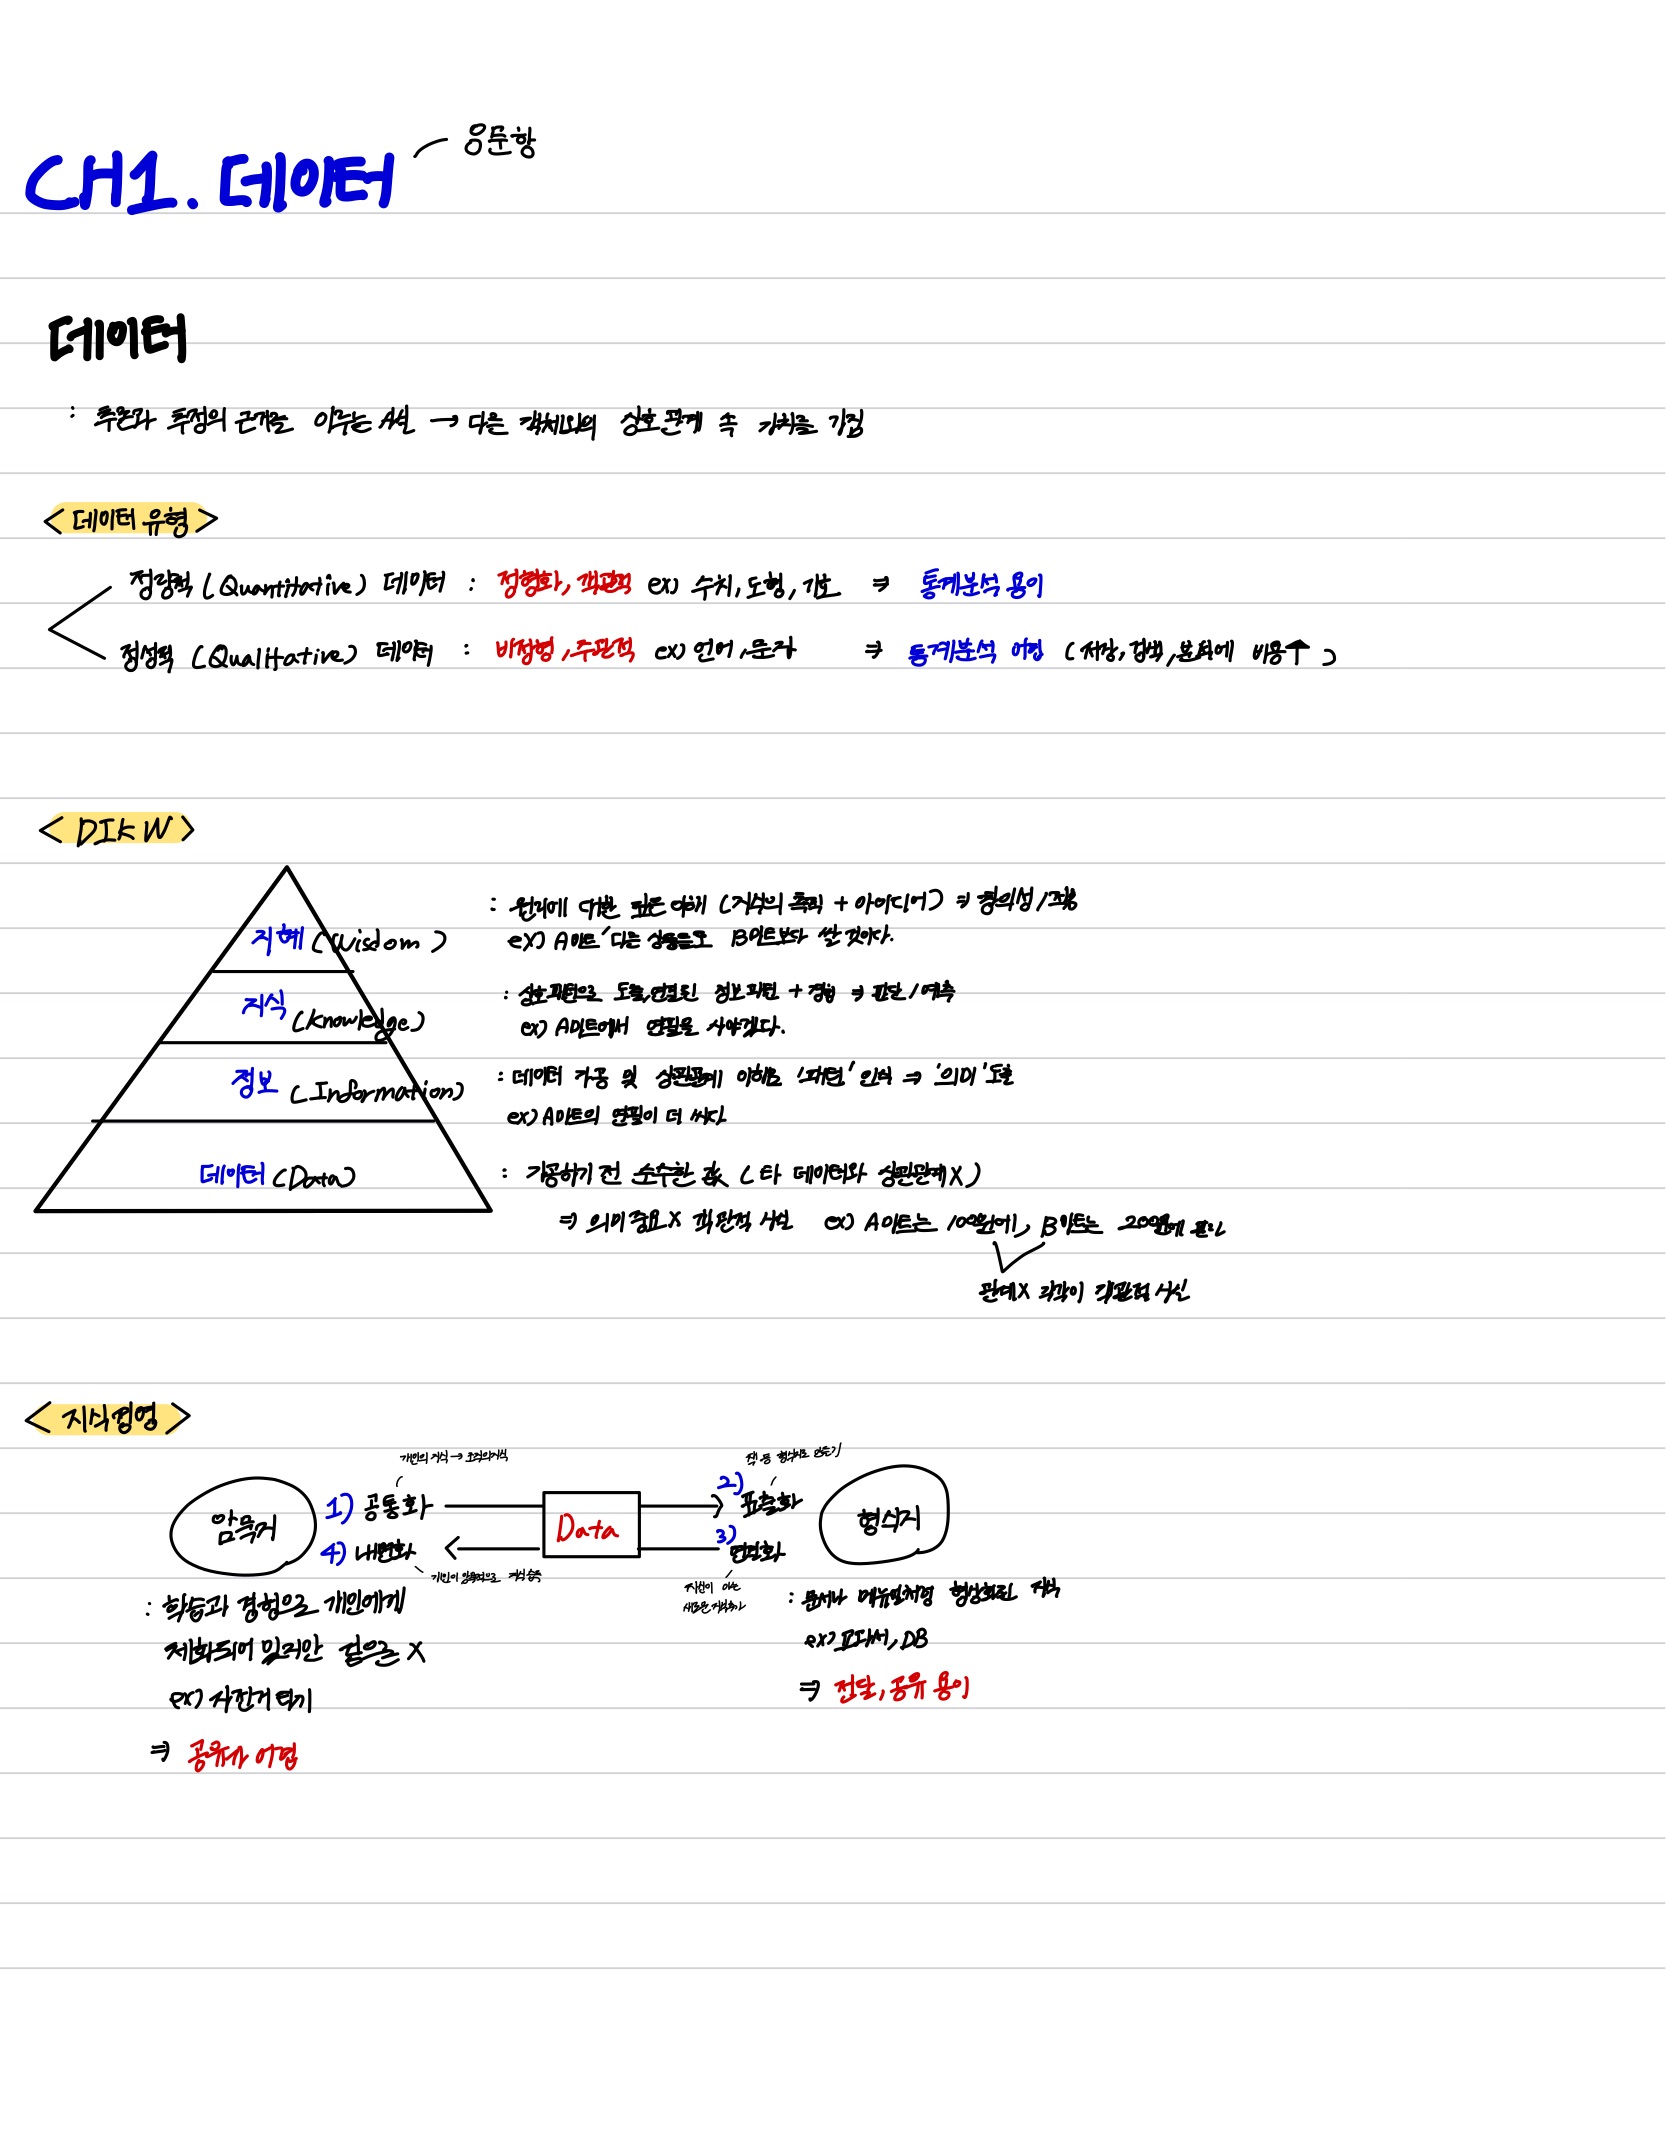 CH1. 데이터
데이터
: 추론과 추정의 근거를 이루는 사실 → 다른 객체와의 상호관계 속 가치를 가짐
<데이터 유형>
정량적 (Quantitative) 데이터 : 정형화, 객관적 ex) 수치, 도형, 기호 ⇒ 통계분석 용이
정성적 (Qualitative) 데이터 : 비정형, 주관적 ex) 언어, 문자 ⇒ 통계분석 어렵 (저장, 검색, 분석에 비용↑)
<DIKW>
: 원리에 대한 깊은 이해 (지식의 축적 + 아이디어) ⇒ 창의성/적용
지혜 (Wisdom)
ex) A마트 다른 상품들도 B마트보다 쌀 것이다.
: 상호패턴으로 도출, 연결된 정보패턴 + 경험 ⇒ 판단 / 예측
지식 (Knowledge)
ex) A마트에서 연필을 사야겠다.
정보 (Information) : 데이터 가공 및 상관관계 이해로 '패턴' 인식 ⇒ '의미' 도출
ex) A마트의 연필이 더 싸다
데이터 (Data) : 가공하기 전 순수한 값 (타 데이터와 상관관계X)
⇒ 의미 중요X 객관적 사실 ex) A마트는 100원에, B마트는 200원에 판다
관계X 각각이 객관적 사실
<지식경영>
개인의 지식 → 조직의 지식
책 등 형식지로 만들기
암묵지 1) 공통화 Data 2) 표출화 형식지
4) 내면화 3) 연결화
개인이 암묵적으로 지식 습득
자신이 아는
새로운 지식 추가
: 학습과 경험으로 개인에게
체화되어 있지만 겉으로 X
ex) 자전거 타기
⇒ 공유가 어렵
: 문서나 메뉴얼처럼 형상화된 지식
ex) 교과서, DB
⇒ 전달, 공유 용이